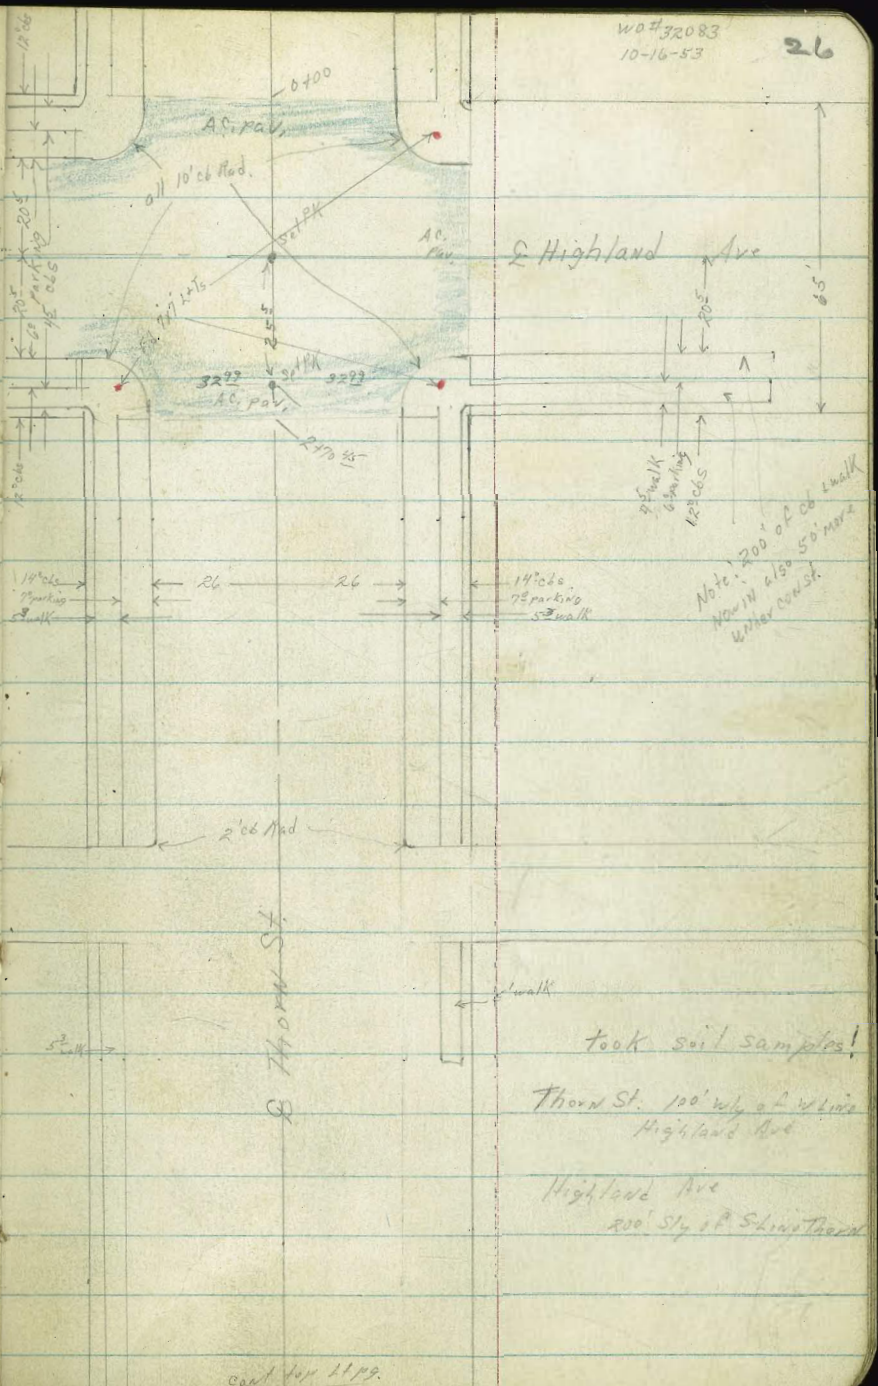 WO#32083
10-16-53
26
12° cb
0+00
A.C. pav.
all 10' cb Rad.
Set PK
A.C.
Pav.
℄ Highland Ave
20⁵
parking
20⁵
6°
4⁵ cbs
20⁵
65'
7x7 L+Ts
25⁵
32⁹⁹
Set PK
32⁹⁹
A.C. pav.
2+70 45
12° cbs
4⁵ walk
6° parking
12° cbs
Note: 200' of cb & walk
now in also 50' more
under const.
14° cbs
7° parking
5³ walk
26
26
14° cbs
7° parking
5³ walk
2' cb Rad
℄ Thorn St.
walk
5³ walk
took soil samples!
Thorn St. 100' wly of W Line
Highland Ave
Highland Ave
200' Sly of S-Line Thorn
cont top Lt pg.